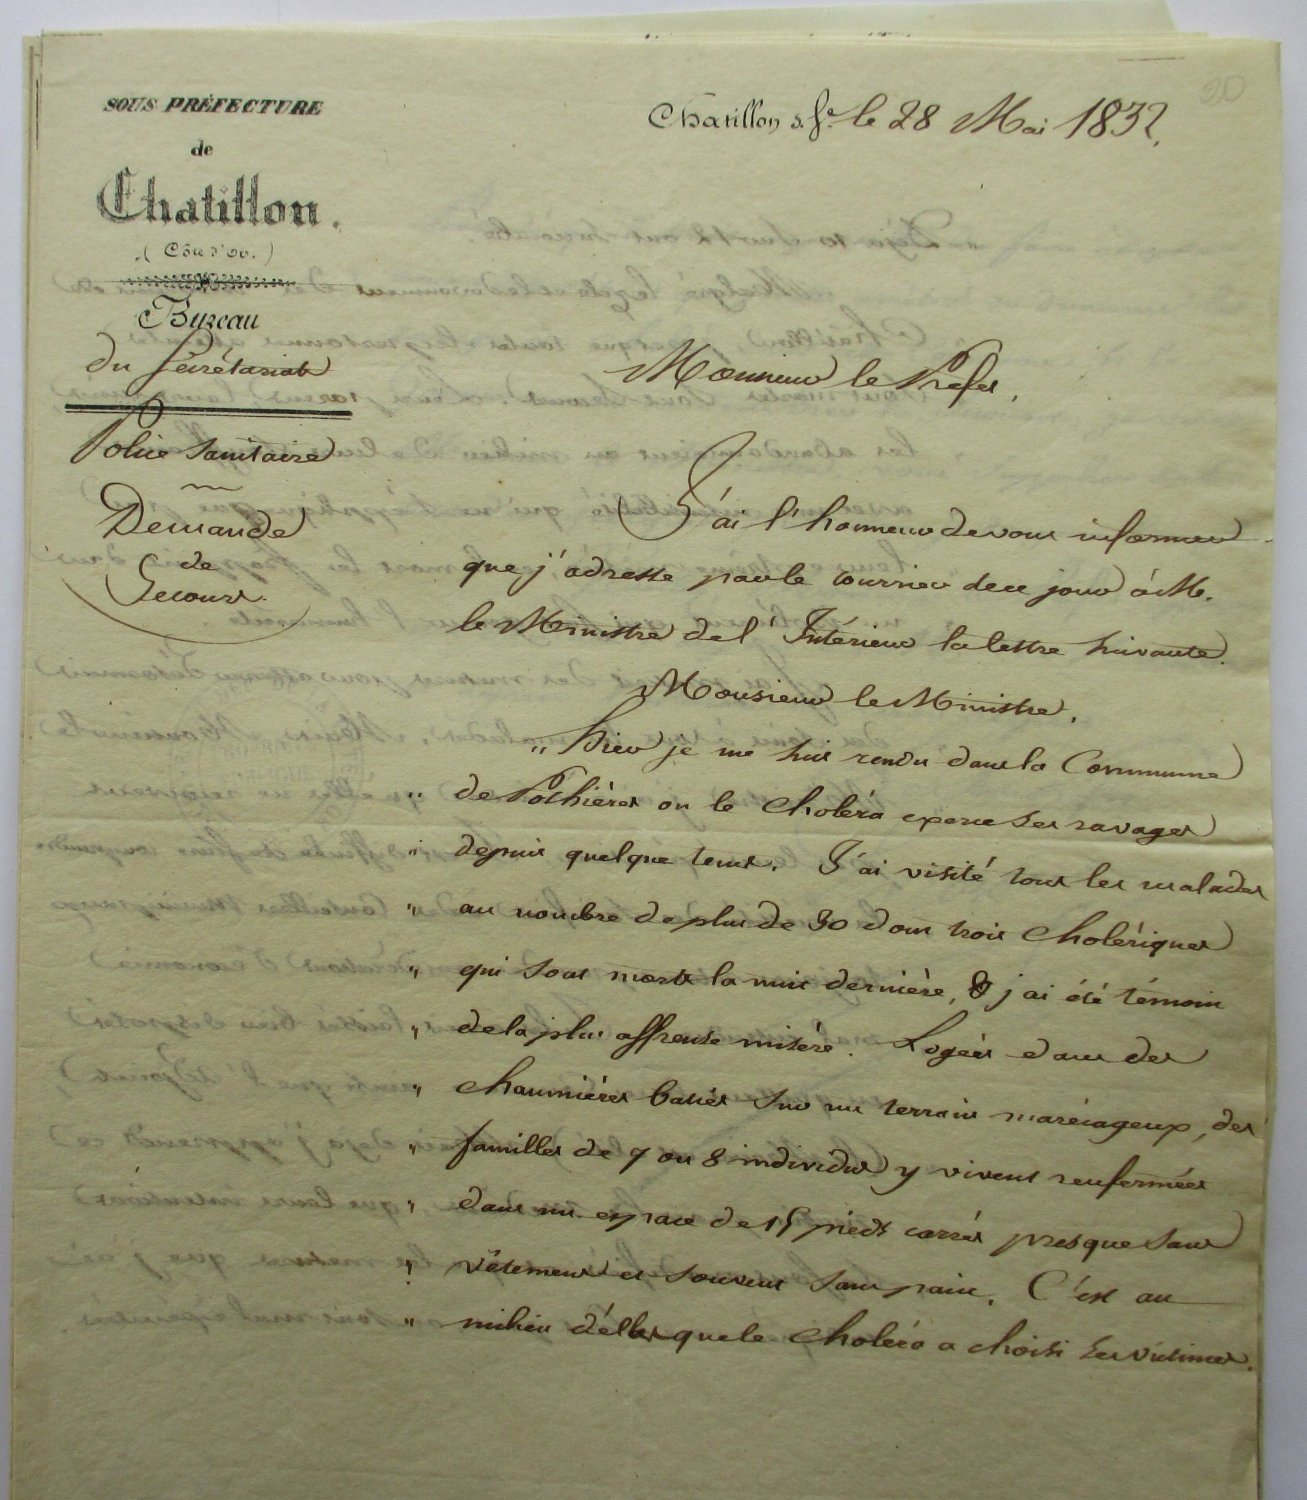 SOUS PRÉFECTURE
de
Chatillon.
(Côte d'Or.)
Bureau
du Sécrétariat
Police Sanitaire
Demande
de
Secours.
20
Chatillon s. Sne. le 28 Mai 1832.
Monsieur le Préfet,
J'ai l'honneur de vous informer
que j'adresse par le courrier de ce jour à M.
le Ministre de l'Intérieur la lettre suivante.
Monsieur le Ministre,
" Hier je me suis rendu dans la Commune
" de Pothières ou le choléra exerce ses ravages
" depuis quelque tems. J'ai visité tous les malades
" au nombre de plus de 30 dont trois cholériques
" qui sont morts la nuit dernière, & j'ai été témoin
" de la plus affreuse misère. Logées dans des
" chaumières baties sur un terrain marécageux, des
" familles de 7 ou 8 individus y vivent renfermées
" dans un espace de 15 pieds carrés presque sans
" vêtement et souvent sans pain. C'est au
" milieu d'elles que le choléra a choisi ses victimes.